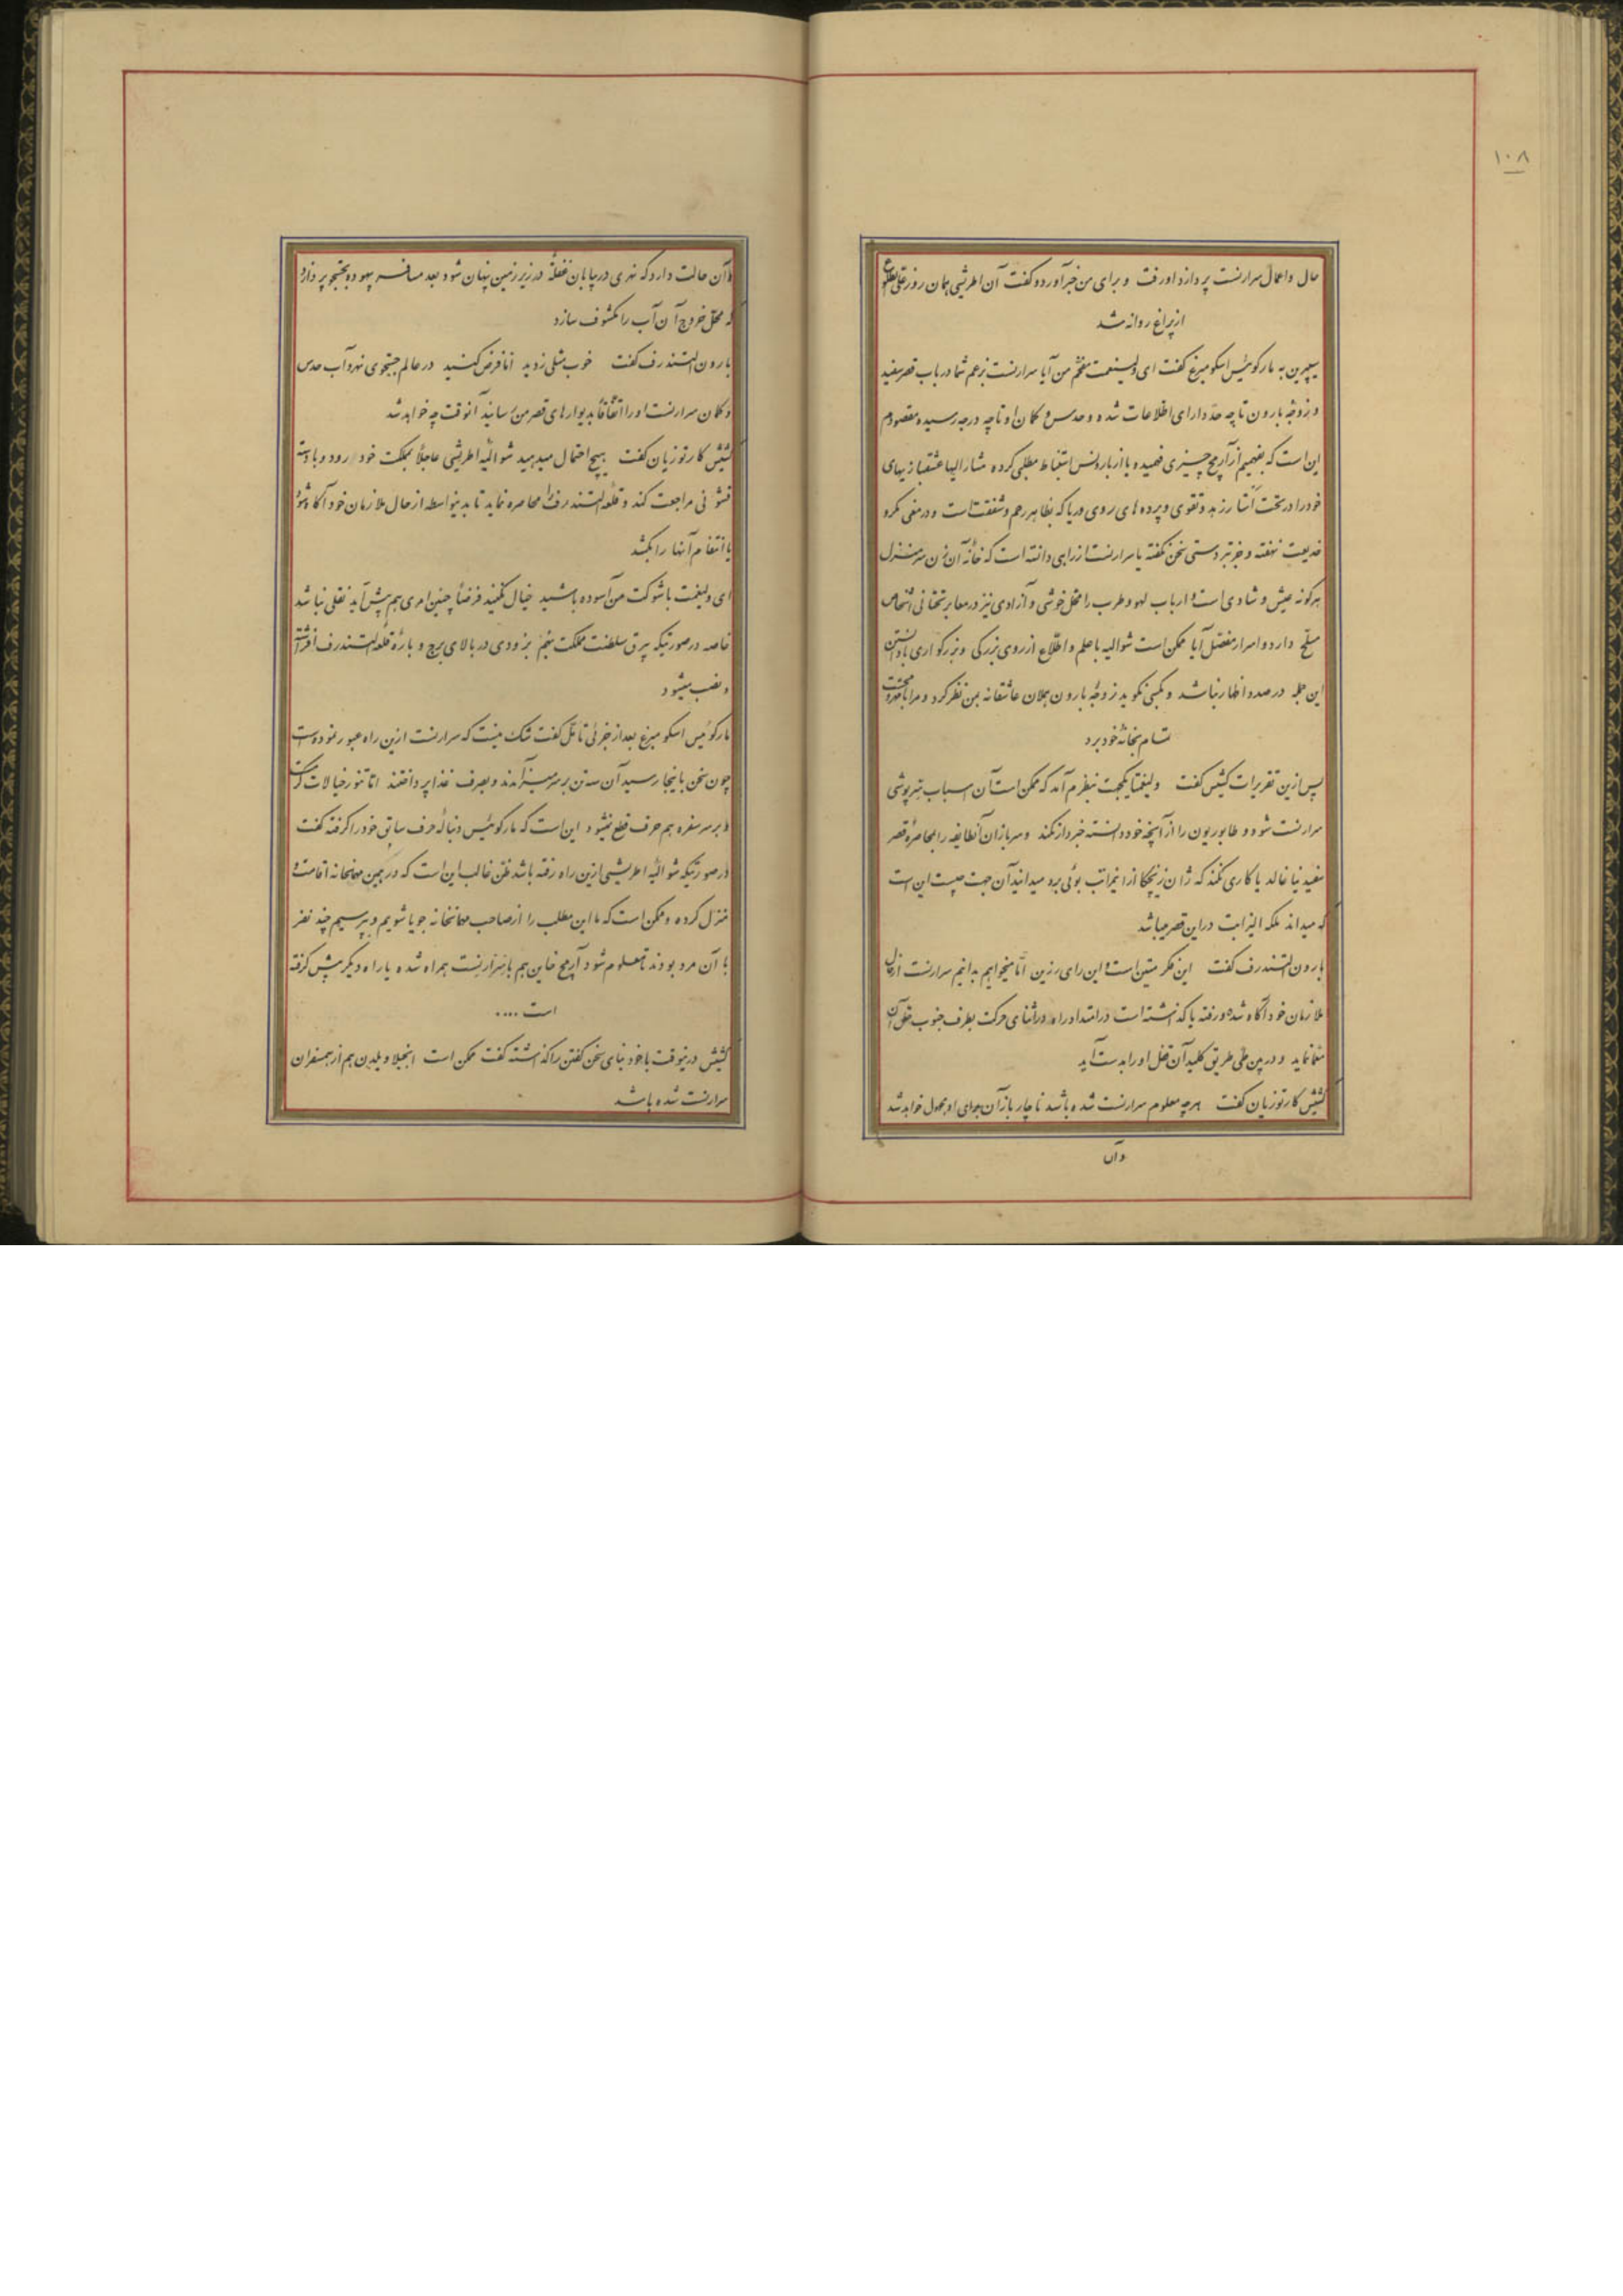 ۱۰۸
حال و اعمال سرارنست پردازد او رفت و برای من خبر آورد و گفت آن اطریشی همان روز علی الطلوع
از پراغ روانه شد
سیپرین به مارکوئیس اسکومبرغ گفت ای ولینعمت مفخم من آیا سرارنست بزعم شما در باب قصر سفید
و زوجه بارون تا چه حد دارای اطلاعات شده و حدس و گمان او تا چه درجه رسیده مقصودم
این است که بفهمیم از آرمج چیزی فهمیده یا از بارونس استنباط مطلبی کرده مشارالیها عشقبازیهای
خود را در تحت استار زهد و تقوی و پرده های روی و ریا که بظاهر رحم و شفقت است و در معنی مکر و
خدیعت نهفته و جز بتردستی سخن نگفته یا سرارنست از راهی دانسته است که خانه آن زن سر منزل
هرگونه عیش و شادی است و ارباب لهو و طرب را محل خوشی و آزادی نیز در معابر تحتانی اشخاص
مسلح دارد و اسرار مفصل آیا ممکن است شوالیه با علم و اطلاع از روی بزرگی و بزرگواری با دانستن
این جمله در صدد اظهار نباشد و بکسی نگوید زوجه بارون هملان عاشقانه بمن نظر کرد و مرا با محبت
تمام بخانه خود برد
پس از این تقریرات کشیش گفت ولینعمتا یکجهت بنظرم آمد که ممکن است آن اسباب پرده پوشی
سرارنست شود و طابوریون را از آنچه خود دانسته خبردار نکند و سربازان آنطایفه را بمحاصره قصر
سفید نیاغالد یا کاری نکند که ژان زیچکا از اینمراتب بوئی برد میدانید آن جهت چیست این است
که میداند ملکه الیزابت در این قصر میباشد
بارون التندرف گفت این فکر متین است و این رای رزین اما میخواهیم بدانیم سرارنست از حال
ملازمان خود آگاه شده و رفته یا گذشته است در امتداد راه و در اثنای حرکت بطرف جنوب حل آن
معما نماید و در حین طی طریق کلید آن قفل او را بدست آید
کشیش کارتوزیان گفت هرچه معلوم سرارنست شده باشد ناچار باز آن برای او مجهول خواهد شد
و آن
و آن حالت دارد که نهری در بیابان غفلةً در زیر زمین پنهان شود بعد مسافر بیهوده بجستجو پردازد
که محل خروج آن آب را مکشوف سازد
بارون التندرف گفت خوب مثلی زدید اما فرض کنید در عالم جستجوی نهر و آب حدس
و گمان سرارنست او را اتفاقاً بدیوارهای قصر من رسانید آنوقت چه خواهد شد
کشیش کارتوزیان گفت هیچ احتمال میدهید شوالیه اطریشی عاجلاً بمملکت خود رود و با دسته
قشونی مراجعت کند و قلعه التندرف را محاصره نماید تا بدینواسطه از حال ملازمان خود آگاه شود
یا انتقام آنها را بکشد
ای ولینعمت با شوکت من آسوده باشید خیال نکنید فرضاً چنین امری هم پیش آید نقلی نباشد
خاصه در صورتیکه بیرق سلطنت مملکت بهم بزودی در بالای برج و باره قلعه التندرف افراشته
و نصب میشود
مارکوئیس اسکومبرغ بعد از جزئی تأمل گفت شک نیست که سرارنست از این راه عبور نموده است
چون سخن باینجا رسید آن سه تن بر سر میز آمدند و بصرف غذا پرداختند اما تنور خیالات گرم است
و بر سر سفره هم حرف قطع نمیشود این است که مارکوئیس دنباله حرف سابق خود را گرفته گفت
در صورتیکه شوالیه اطریشی از این راه رفته باشد ظن غالب این است که در همین مهمانخانه اقامت و
منزل کرده و ممکن است که ما این مطلب را از صاحب مهمانخانه جویا شویم و بپرسیم چند نفر
با آن مرد بودند تا معلوم شود آرمج خاین هم با سرارنست همراه شده یا راه دیگر پیش گرفته
است ....
کشیش در اینوقت با خود بنای سخن گفتن را گذاشته گفت ممکن است انجیلا ویلدن هم از همسفران
سرارنست شده باشد